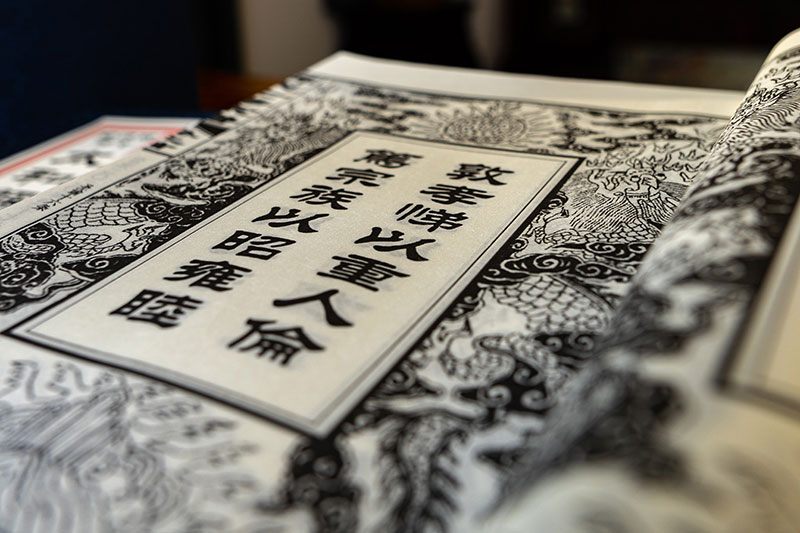 敦孝悌以重人倫
篤宗族以昭雍睦